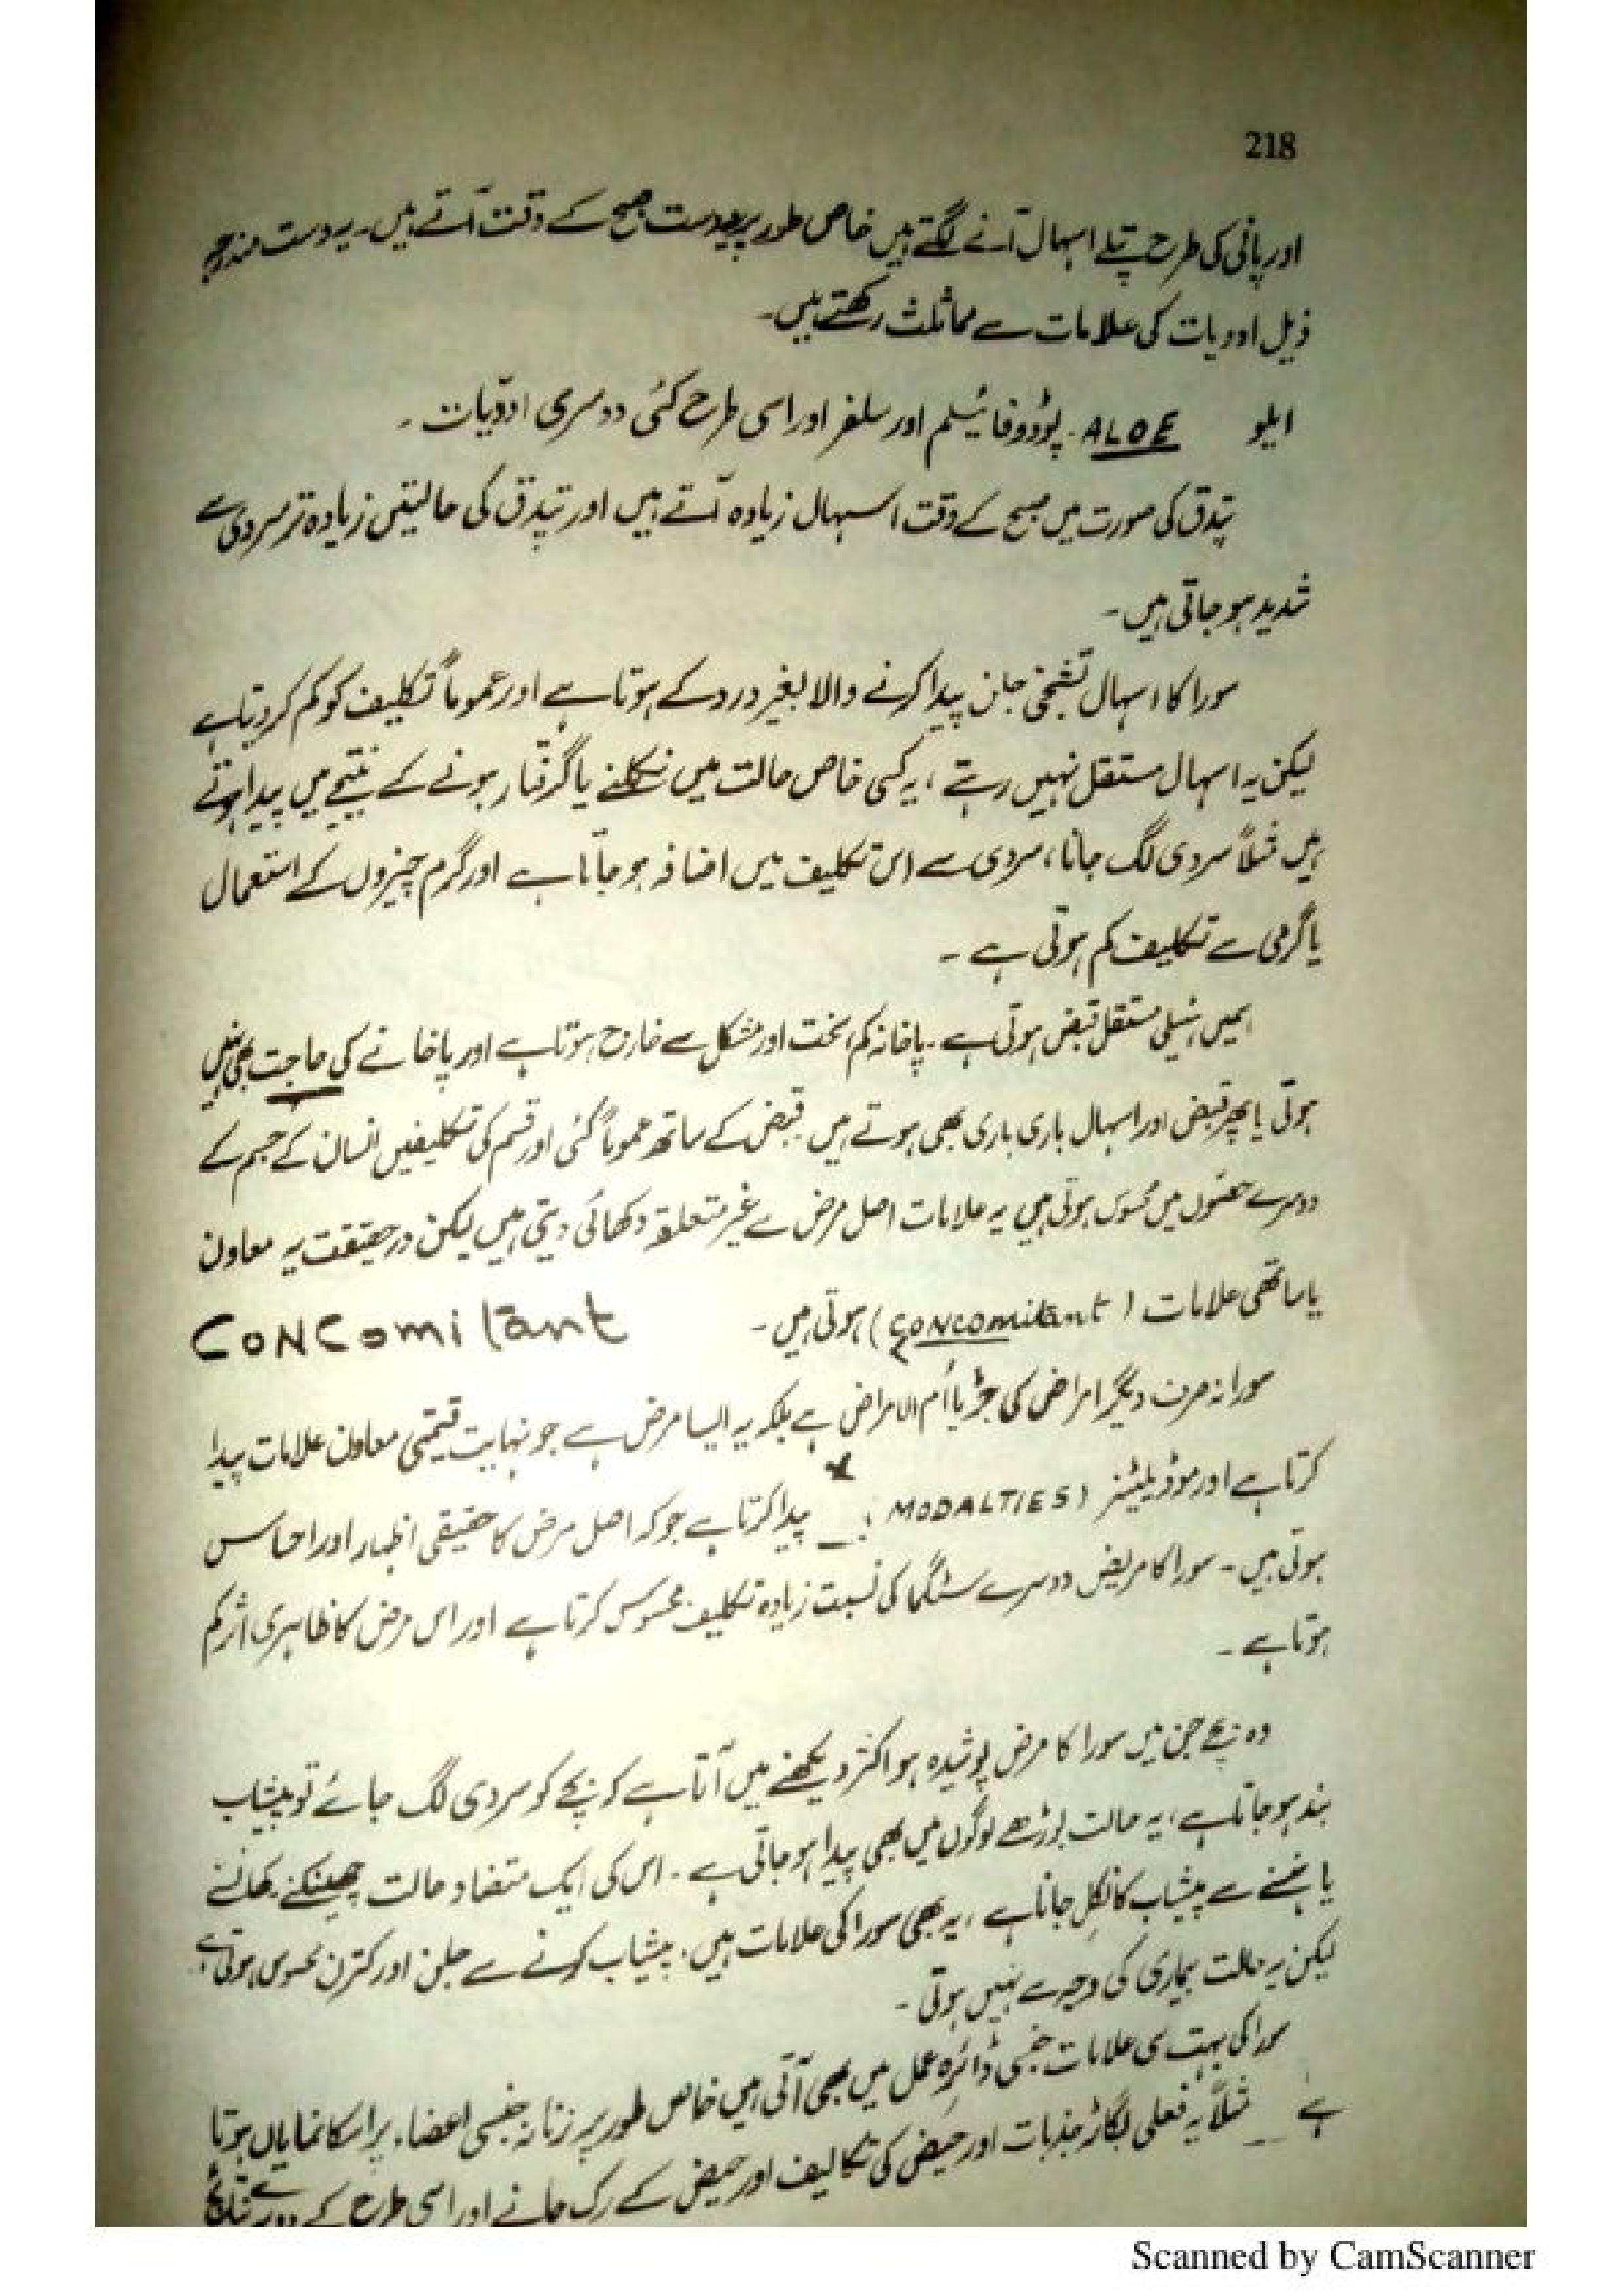 218
اور پانی کی طرح پتلے اسہال آنے لگتے ہیں خاص طور پر یہ دست صبح کے وقت آتے ہیں۔ یہ دست مندرجہ
ذیل ادویات کی علامات سے مماثلث رکھتے ہیں۔
ایلو ALOE۔ پوڈوفائیلم اور سلفر اور اسی طرح کئی دوسری ادویات۔
تپدق کی صورت میں صبح کے وقت اسہال زیادہ آتے ہیں اور تپدق کی حالیتں زیادہ تر سردی سے
شدید ہو جاتی ہیں۔
سورا کا اسہال تشنجی پیدا کرنے والا بغیر درد کے ہوتا ہے اور عموماً تکلیف کو کم کر دیتا ہے
لیکن یہ اسہال مستقل نہیں رہتے، یہ کسی خاص حالت میں نکلنے یا گرفتار ہونے کے نتیجے میں پیدا ہوتے
ہیں مثلاً سردی لگ جانا، سردی سے اس تکلیف میں اضافہ ہو جاتا ہے اور گرم چیزوں کے استعمال
یا گرمی سے تکلیف کم ہوتی ہے۔
ہمیں مستقل قبض ہوتی ہے۔ پاخانہ کم، سخت اور مشکل سے خارج ہوتا ہے اور پاخانے کی حاجت بھی نہیں
ہوتی یا پھر قبض اور اسہال باری باری بھی ہوتے ہیں قبض کے ساتھ عموماً کئی اور قسم کی تکلیفیں انسان کے جسم کے
دوسرے حصّوں میں محسوس ہوتی ہیں یہ علامات اصل مرض سے غیر متعلق دکھائی دیتی ہیں لیکن درحقیقت یہ معاون
یا ساتھی علامات (CONCOMITANT) ہوتی ہیں۔ CONComitant
سورا نہ صرف دیگر امراض کی جڑ یا اُم الامراض ہے بلکہ یہ ایسا مرض ہے جو نہایت قیمتی معاون علامات پیدا
کرتا ہے اور موڈیلیٹیز (MODALTIES) پیدا کرتا ہے جو کہ اصل مرض کا حقیقی اظہار اور احساس
ہوتی ہیں۔ سورا کا مریض دوسرے سٹگما کی نسبت زیادہ تکلیف محسوس کرتا ہے اور اس مرض کا ظاہری اثر کم
ہوتا ہے۔
وہ بچے جن میں سورا کا مرض پوشیدہ ہو اکثر دیکھنے میں آتا ہے کہ بچے کو سردی لگ جائے تو پیشاب
بند ہو جاتا ہے، یہ حالت بوڑھے لوگوں میں بھی پیدا ہو جاتی ہے۔ اس کی ایک متضاد حالت چھینکنے کھانسنے
یا ہنسنے سے پیشاب کا نکل جانا ہے، یہ بھی سورا کی علامات ہیں۔ پیشاب کرنے سے جلن اور کترن محسوس ہوتی ہے
لیکن یہ حالت بیماری کی وجہ سے نہیں ہوتی۔
سورا کی بہت سی علامات جنسی دائرہ عمل میں بھی آتی ہیں خاص طور پر زنانہ جنسی اعضاء پر اس کا نمایاں ہوتا
ہے مثلاً یہ فعلی بگاڑ جذبات اور حیض کی تکالیف اور حیض کے رک جانے اور اسی طرح کے دوسرے نتائج
Scanned by CamScanner